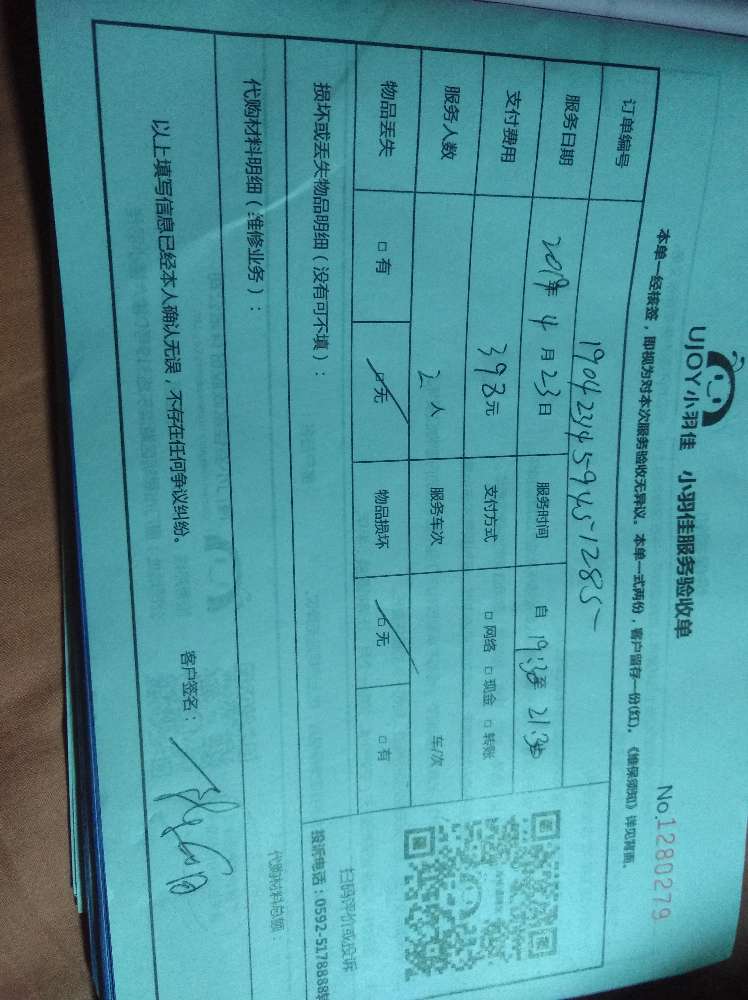 UJOY小羽佳 小羽佳服务验收单
No.1280279
本单一经核签，即视为对本次服务验收无异议。本单一式两份，客户留存一份(红)。《维保须知》详见背面。
订单编号 1904234594512855
服务日期 2019年 4 月 23 日 服务时间 自 19:30至 21:30
支付费用 398元 支付方式 □ 网络 □ 现金 □ 转账
服务人数 2 人 服务车次 车/次
物品丢失 □ 有 □ 无 物品损坏 □ 无 □ 有
损坏或丢失物品明细（没有可不填）：
扫码评价或投诉
投诉电话：0592-5178888转
代购材料明细（维修业务）：
代购材料总额：
以上填写信息已经本人确认无误，不存在任何争议纠纷。
客户签名：